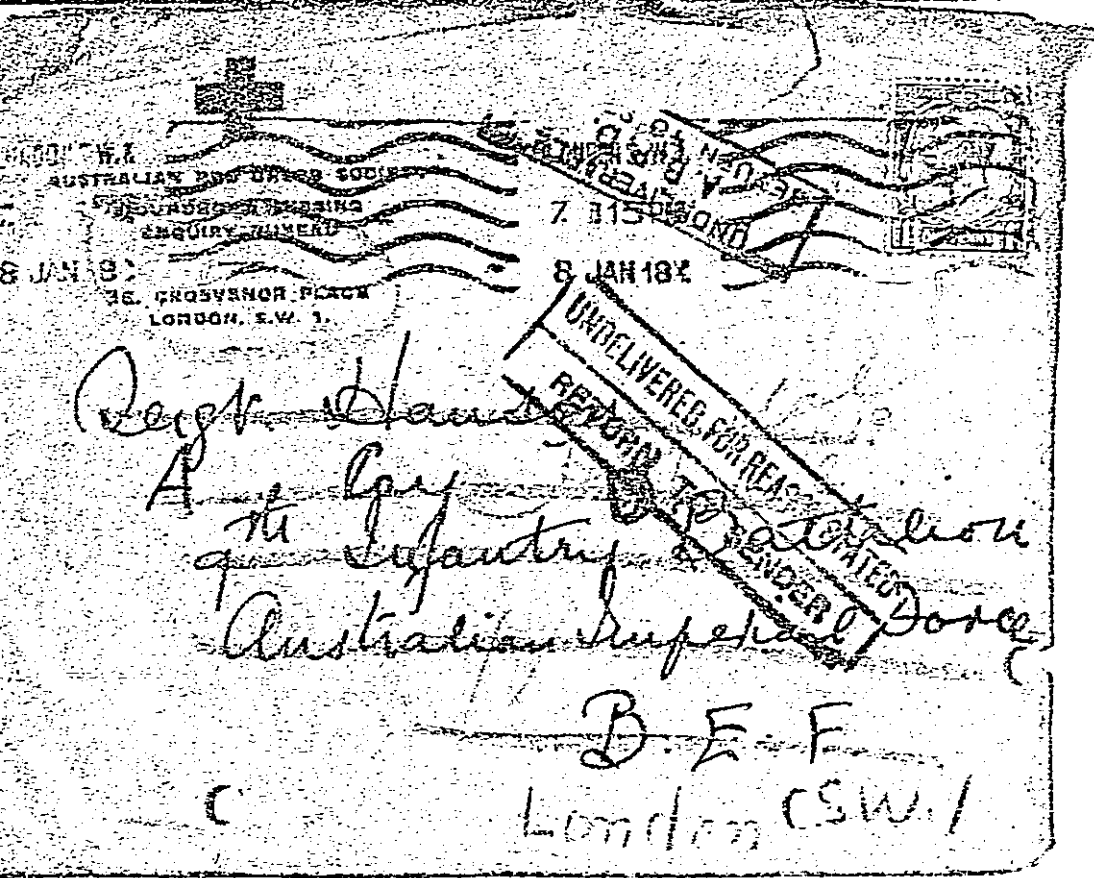 AUSTRALIAN RED CROSS SOCIETY
WOUNDED & MISSING
ENQUIRY BUREAU
36, GROSVENOR PLACE
LONDON, S.W. 1.
8 JAN 18
7. 115
8 JAN 18
UNDELIVERED, FOR REASON STATED
RETURN TO SENDER
Sergt.
A Coy
9th Infantry Battalion
Australian Imperial Force
B. E. F
London (SW. 1